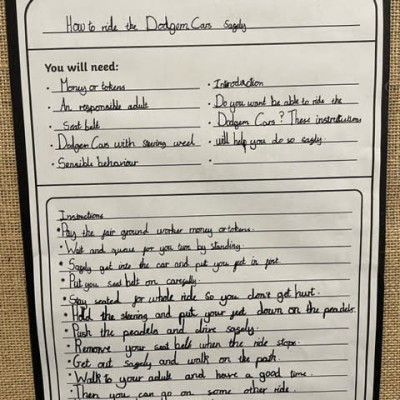 How to ride the Dodgem Cars safely
You will need:
• Money or tokens
• An responsible adult
• Seat belt
• Dodgem Cars with stering weel
• Sensible behaviour
• Introdaction
• Do you want be able to ride the
• Dodgem Cars? These instructions
• will help you do so safely.
Instructions
• Pay the fair ground worker money or tokens.
• Wait and queue for you turn by standing.
• Safely get into the car and put you feet in first.
• Put you seat belt on carefully.
• Stay seated for whole ride so you don't get hurt.
• Hold the stering and put your feet down on the peadels.
• Push the peadels and drive safely.
• Remove your seat belt when the ride stops.
• Get out safely and walk on the path.
• Walk to your adult and have a good time.
• Then you can go on some other ride.